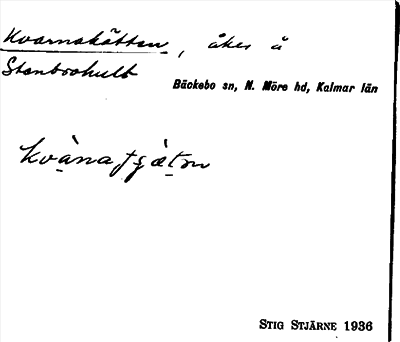 Kvarnakätten, åker å
Stenbrohult
Bäckebo sn, N. Möre hd, Kalmar län
STIG STJÄRNE 1936